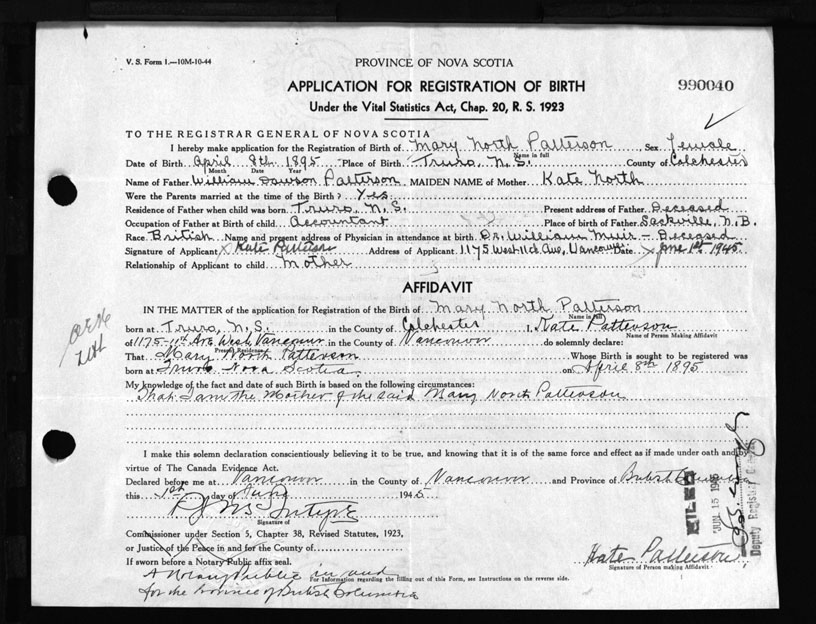 V. S. Form 1.—10M-10-44
PROVINCE OF NOVA SCOTIA
APPLICATION FOR REGISTRATION OF BIRTH
990040
Under the Vital Statistics Act, Chap. 20, R. S. 1923
TO THE REGISTRAR GENERAL OF NOVA SCOTIA
I hereby make application for the Registration of Birth of Mary North Patterson, Sex Female
Name in full
Date of Birth April 8th 1895 Place of Birth Truro, N.S. County of Colchester
Month Date Year
Name of Father William Dawson Patterson MAIDEN NAME of Mother Kate North
Were the Parents married at the time of the Birth? Yes
Residence of Father when child was born Truro, N.S. Present address of Father Deceased
Occupation of Father at Birth of child Accountant Place of birth of Father Sackville, N.B.
Race British Name and present address of Physician in attendance at birth Dr. William Muir - Deceased
Signature of Applicant x Kate Patterson Address of Applicant 1175 West 11th Ave, Vancouver Date x June 1st 1945
Relationship of Applicant to child Mother
AFFIDAVIT
IN THE MATTER of the application for Registration of the Birth of Mary North Patterson
Name in full
born at Truro, N.S. in the County of Colchester I, Kate Patterson
Name of Person Making Affidavit
of 1175-11th Ave West, Vancouver in the County of Vancouver do solemnly declare:
Present Residence
That Mary North Patterson Whose Birth is sought to be registered was
born at Truro Nova Scotia on April 8th 1895
My knowledge of the fact and date of such Birth is based on the following circumstances:
That I am the Mother of the said Mary North Patterson
I make this solemn declaration conscientiously believing it to be true, and knowing that it is of the same force and effect as if made under oath and by
virtue of The Canada Evidence Act.
Declared before me at Vancouver in the County of Vancouver and Province of British Columbia
this 1st day of June 1945
FILED
JUN 15 1945
Deputy Registrar
Signature of
Commissioner under Section 5, Chapter 38, Revised Statutes, 1923,
or Justice of the Peace in and for the County of
If sworn before a Notary Public affix seal.
Kate Patterson
Signature of Person making Affidavit
A Notary Public in and
For information regarding the filling out of this Form, see Instructions on the reverse side.
for the Province of British Columbia